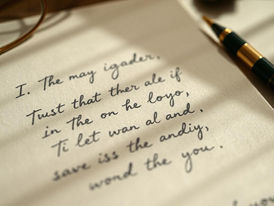 I. The may igader.
Tust that ther ale if
in the on he loyo,
Ti let wan al and.
save iss the andiy,
word the you.